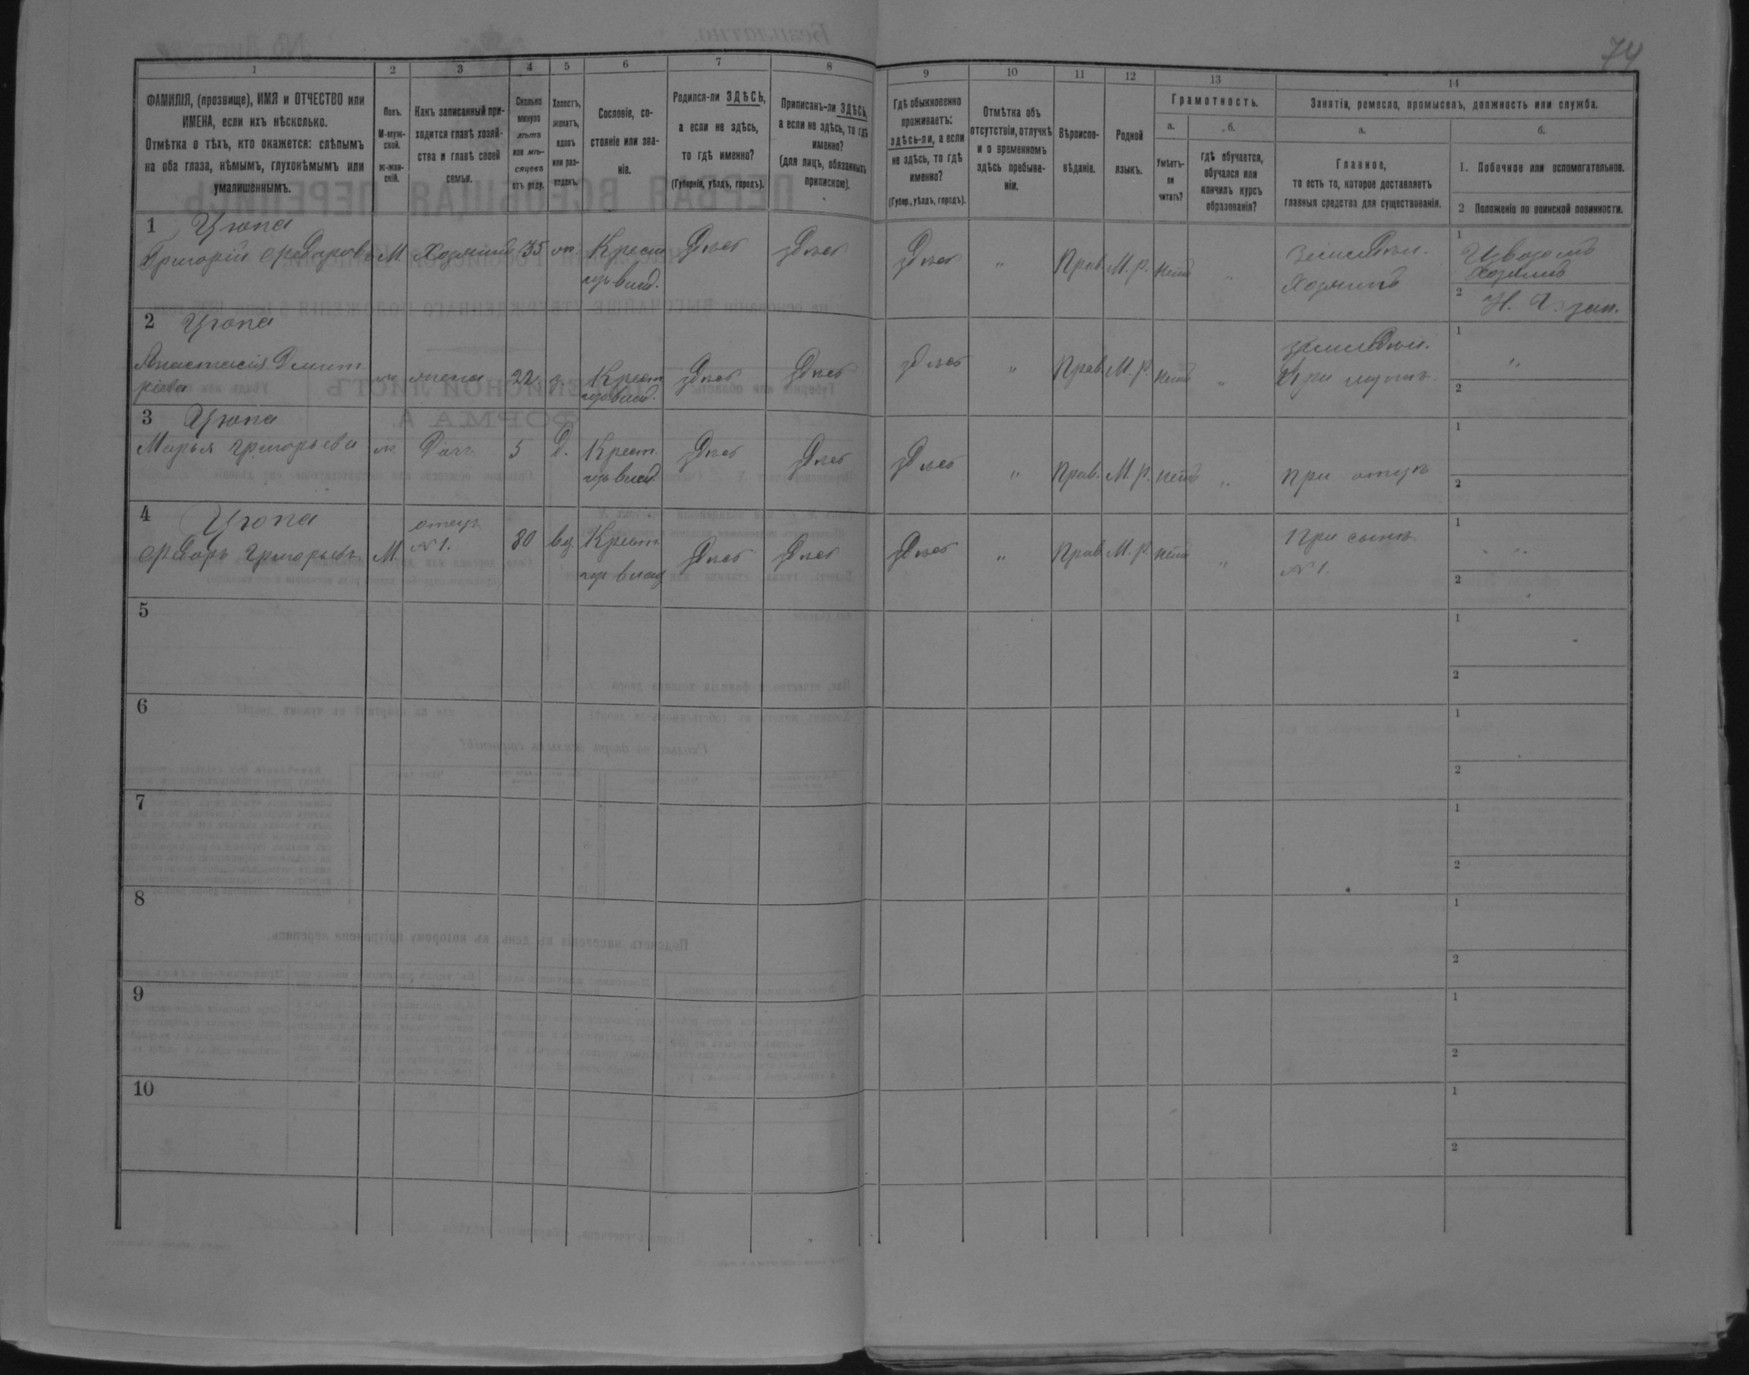 74
1 2 3 4 5 6 7 8 9 10 11 12 13 14
ФАМИЛІЯ, (прозвище), ИМЯ и ОТЧЕСТВО или
ИМЕНА, если ихъ нѣсколько.
Отмѣтка о тѣхъ, кто окажется: слѣпымъ
на оба глаза, нѣмымъ, глухонѣмымъ или
умалишеннымъ.
Полъ.
М-муж-
ской.
Ж-жен-
скій.
Какъ записанный при-
ходится главѣ хозяй-
ства и главѣ своей
семьи.
Сколько
минуло
лѣтъ
или мѣ-
сяцевъ
отъ роду.
Холостъ,
женатъ,
вдовъ
или раз-
веденъ.
Сословіе, со-
стояніе или зва-
ніе.
Родился-ли ЗДѢСЬ,
а если не здѣсь,
то гдѣ именно?
(Губернія, уѣздъ, городъ).
Приписанъ-ли ЗДѢСЬ,
а если не здѣсь, то гдѣ
именно?
(для лицъ, обязанныхъ
припискою).
Гдѣ обыкновенно
проживаетъ:
здѣсь-ли, а если
не здѣсь, то гдѣ
именно?
(Губер., уѣздъ, городъ).
Отмѣтка объ
отсутствіи, отлучкѣ
и о временномъ
здѣсь пребыва-
ніи.
Вѣроиспо-
вѣданіе.
Родной
языкъ.
Грамотность.
а.
Умѣетъ-
ли
читать?
б.
гдѣ обучается,
обучался или
кончилъ курсъ
образованія?
Занятіе, ремесло, промыселъ, должность или служба.
а.
Главное,
то есть то, которое доставляетъ
главныя средства для существованія.
б.
1. Побочное или вспомогательное.
2 Положеніе по воинской повинности.
1 Цюпа
Григорій Ѳедоровъ М Хозяинъ 35 ж. Крест. здѣсь здѣсь здѣсь " Прав. М. р. нѣтъ "
изъ влад.
земледѣл.
Хозяинъ
1 Извозомъ
Хозяинъ
2 Н. 2. зап.
2 Цюпа
Анастасія Дмит
ріева ж жена 22 з. Крест. здѣсь здѣсь здѣсь " Прав М. р. нѣтъ "
изъ влад.
земледѣл.
При мужѣ
1 "
2
3 Цюпа
Марья Григорьева ж Дочь 5 д. Крест. здѣсь здѣсь здѣсь " Прав. М. р. нѣтъ "
изъ влад.
При отцѣ
1
2
4 Цюпа
Ѳедоръ Григорьевъ М отецъ
№ 1. 80 вд. Крест. здѣсь здѣсь здѣсь " Прав М. р. нѣтъ "
изъ влад
При сынѣ
№ 1.
1 "
2
5
1
2
6
1
2
7
1
2
8
1
2
9
1
2
10
1
2